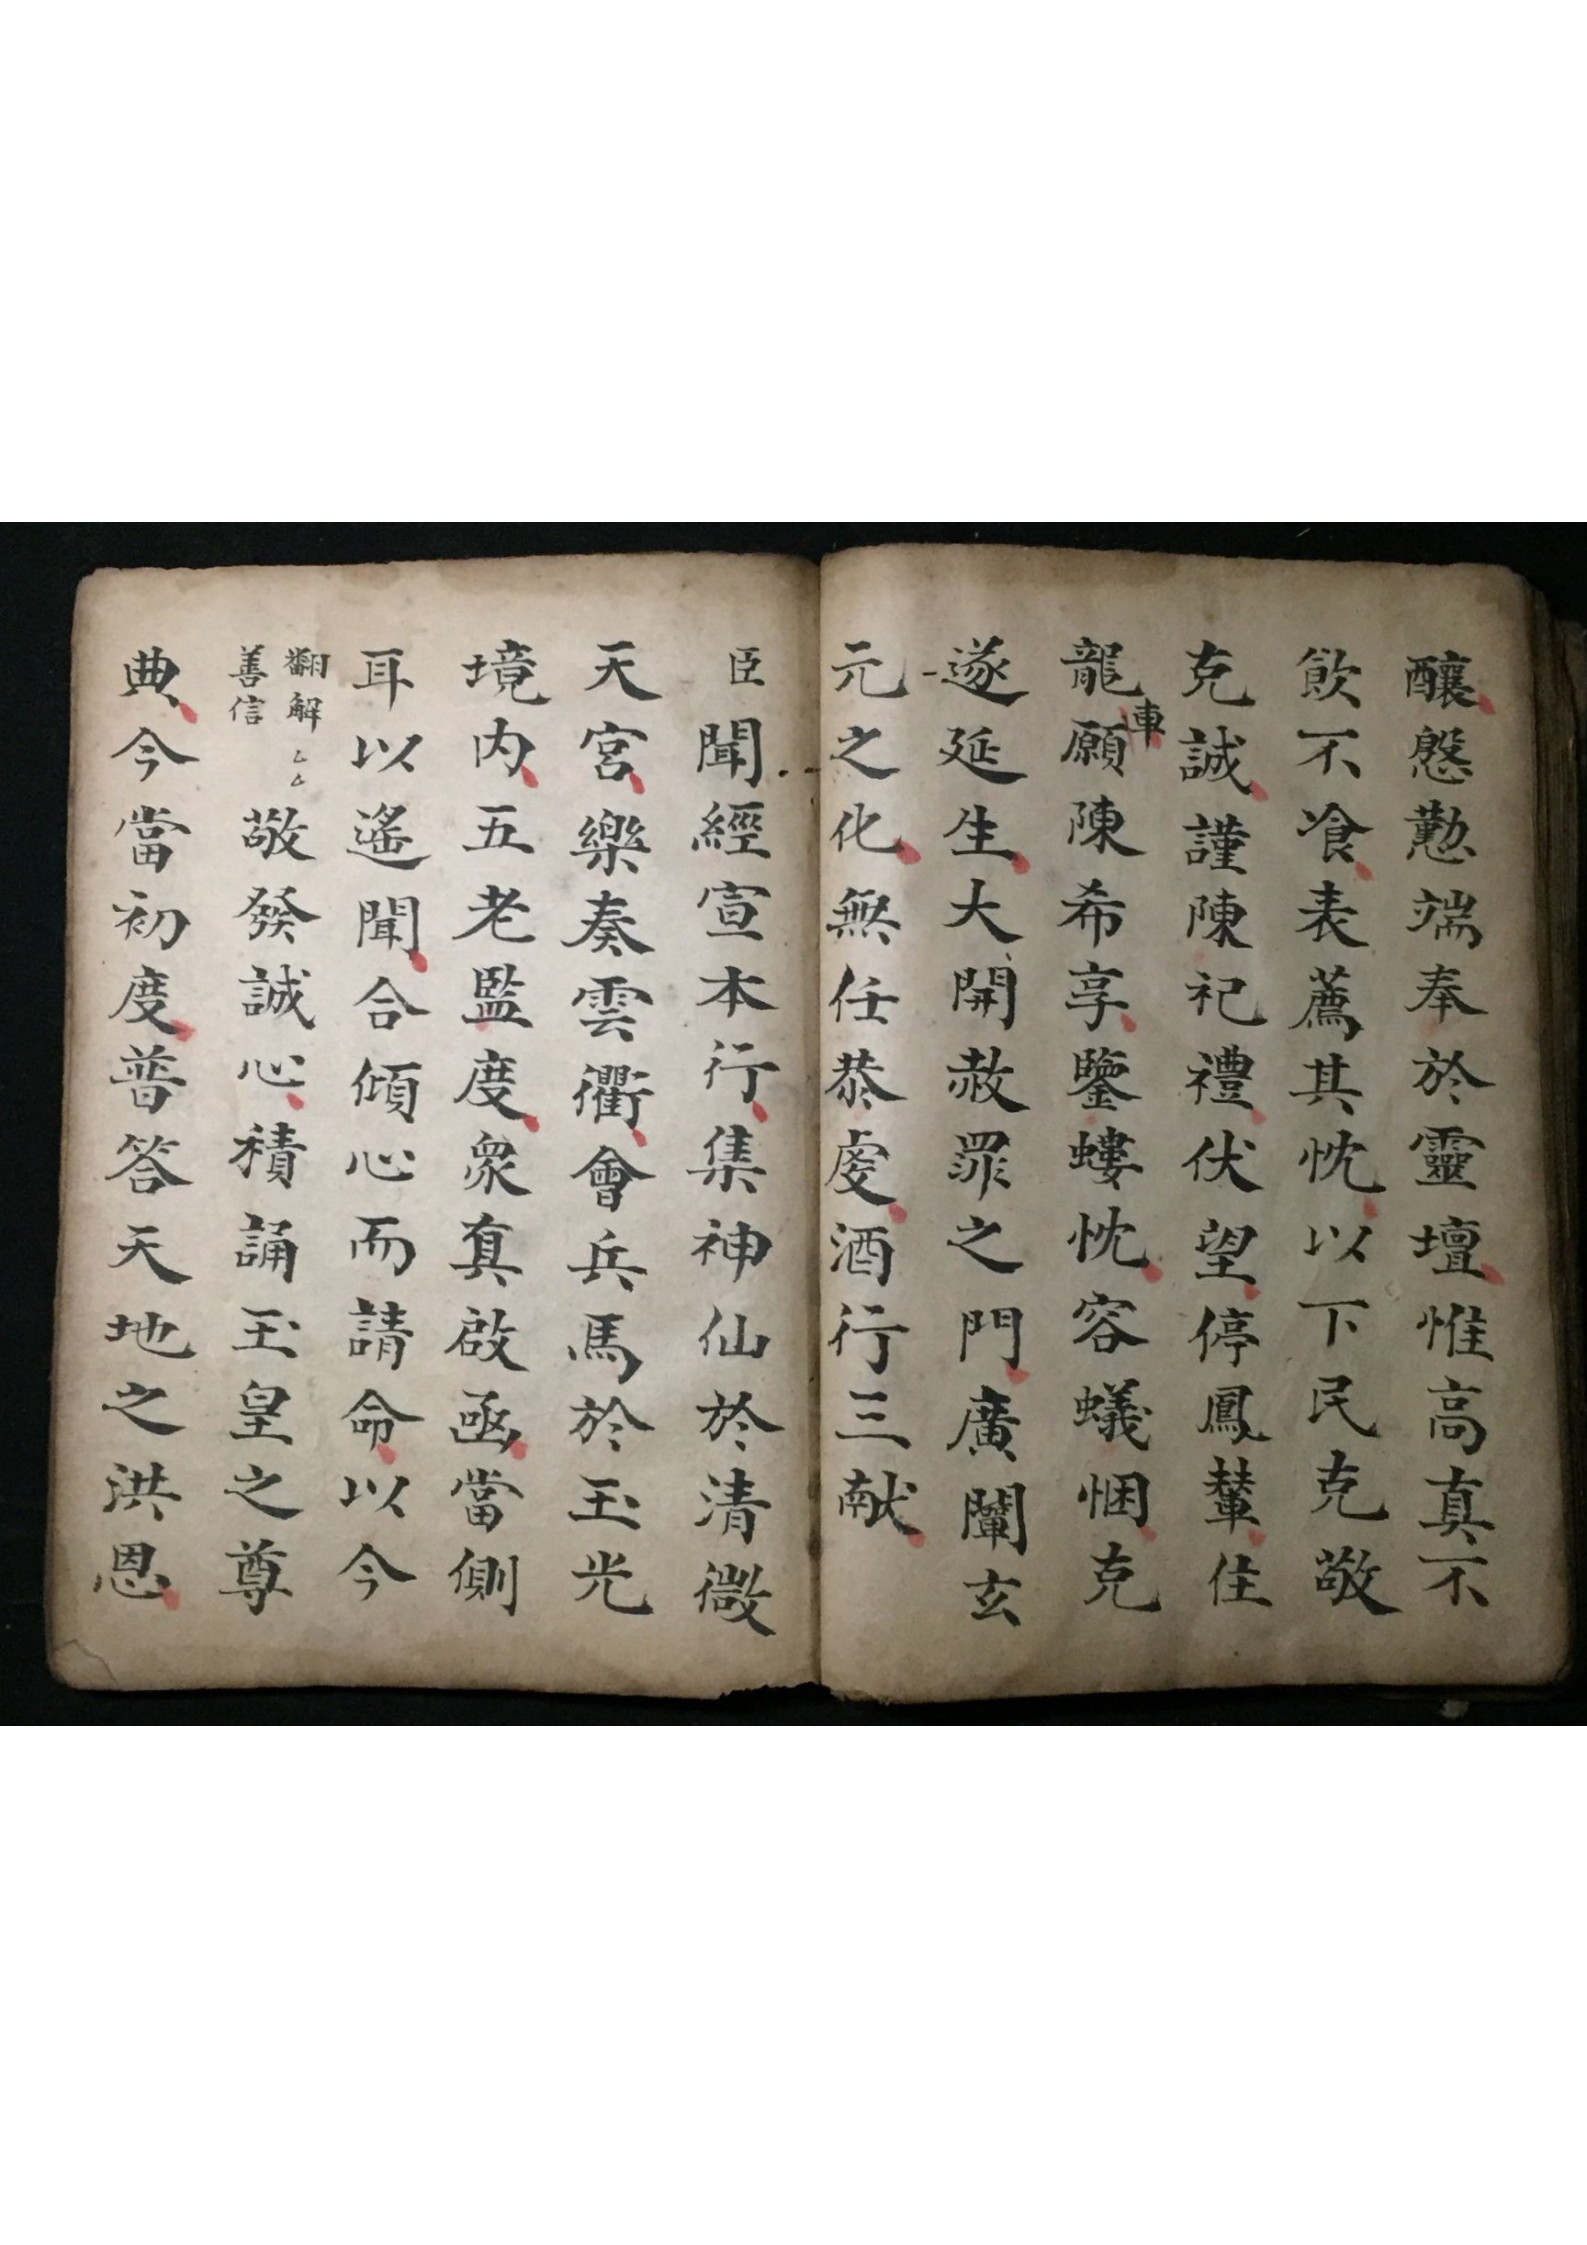 釀慇懃端奉於靈壇惟高真不
飲不飡表薦其忱以下民克敬
克誠謹陳祀禮伏望停鳳輦住
龍車願陳希享鑒螻忱容蟻悃克
遂延生大開赦罪之門廣闡玄
元之化無任恭虔酒行三献
臣聞經宣本行集神仙於清微
天宮樂奏雲衢會兵馬於玉光
境内五老監度衆真啟函當側
耳以遙聞合傾心而請命以今
翻解厶厶
善信敬發誠心積誦玉皇之尊
典今當初度普答天地之洪恩